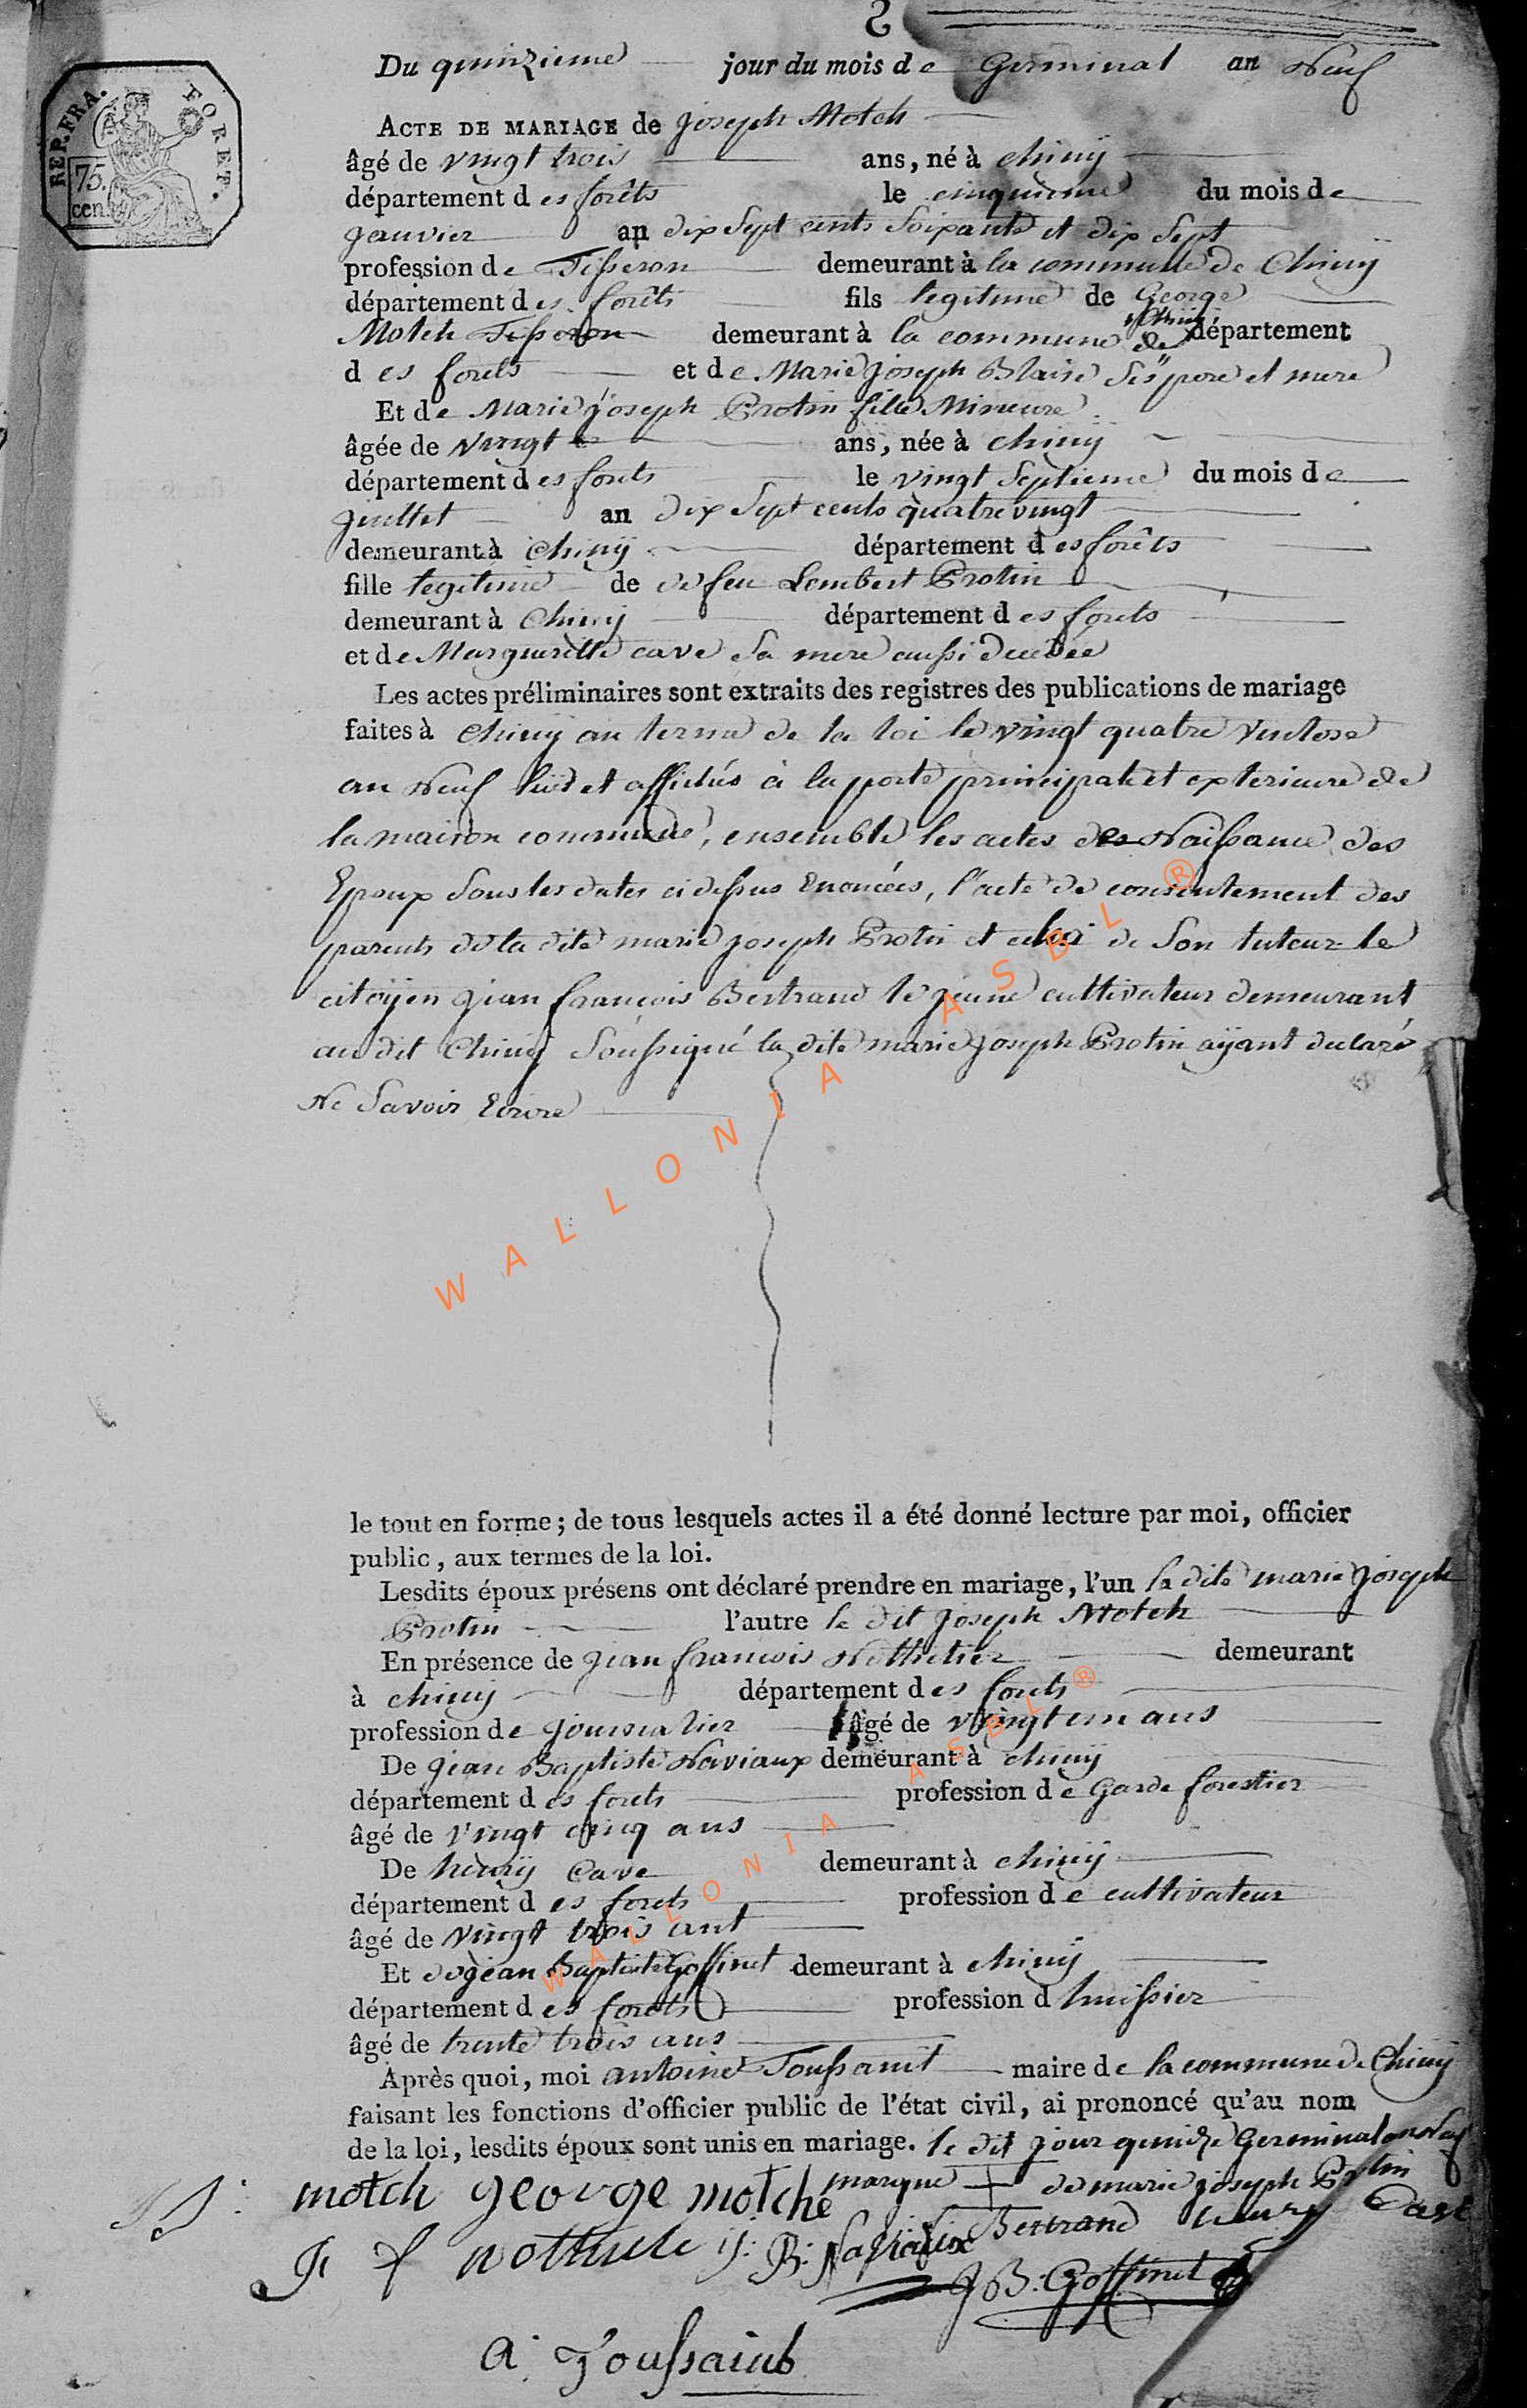 2
Du quinzieme jour du mois de Germinal an Neuf
REP. FRA. FORET.
75.
cen.
ACTE DE MARIAGE de Joseph Motch
âgé de vingt trois ans, né à chiny
département des forêts le cinquieme du mois de
Janvier an dix Sept cents Soixante et dix Sept
profession de Tisseron demeurant à la commune de Chiny
département des forêts fils legitime de George
Motch Tisseron demeurant à la commune de Chiny département
des forets et de Marie Joseph Blaise Ses pere et mere
Et de Marie joseph Protin fille Mineure
âgée de vingt ans, née à chiny
département des forets le vingt Septieme du mois de
Juillet an dix Sept cents quatrevingt
demeurant à Chiny département des forêts
fille legitime de de feu Lambert Protin
demeurant à Chiny département des forets
et de Margueritte cave Sa mere aussi decedée
Les actes préliminaires sont extraits des registres des publications de mariage
faites à Chiny au terme de la loi le vingt quatre Ventose
an Neuf et affichés à la porte principale et exterieure de
la maison commune, ensemble les actes des Naissance des
Epoux Sous les dates cidessus Enoncées, l'acte de consentement des
parents de la dite marie joseph Protin et celui de Son tuteur le
citoyen jean françois Bertrand le jeune cultivateur demeurant
au dit Chiny Soussigné la dite marie Joseph Protin ayant declaré
Ne Savoir Ecrire
WALLONIA ASBL ®
le tout en forme; de tous lesquels actes il a été donné lecture par moi, officier
public, aux termes de la loi.
Lesdits époux présens ont déclaré prendre en mariage, l'un la dite marie Joseph
Protin l'autre le dit Joseph Motch
En présence de jean francois demeurant
à chiny département des forets
profession de journalier âgé de vingt un ans
De jean Baptiste Naviaux demeurant à chiny
département des forets profession de Garde forestier
âgé de vingt cinq ans
De henry Cave demeurant à chiny
département des forets profession de cultivateur
âgé de vingt trois ant
Et de jean Baptiste Goffinet demeurant à chiny
département des forets profession d huissier
âgé de trente trois ans
WALLONIA ASBL ®
Après quoi, moi antoine Toussaint maire de la commune de Chiny
faisant les fonctions d'officier public de l'état civil, ai prononcé qu'au nom
de la loi, lesdits époux sont unis en mariage. le dit jour quinze Germinal an Neuf
motch george motche marque + de marie joseph Protin
J f J: B: Naviaux Bertrand henry Cave
J B: Goffinet
a: Toussaint